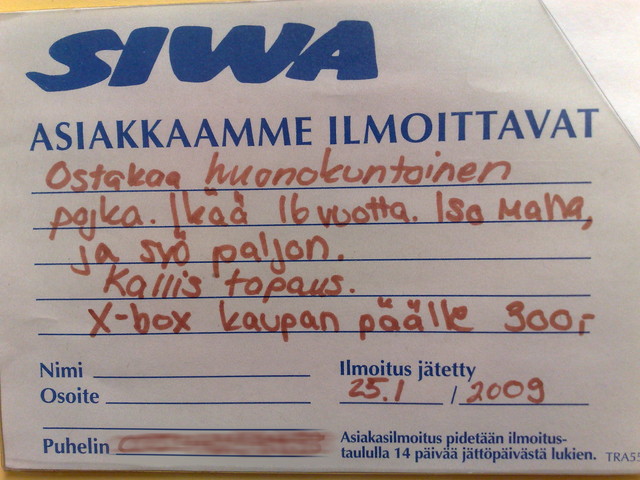 SIWA
ASIAKKAAMME ILMOITTAVAT
Ostakaa huonokuntoinen
pojka. Ikää 16 vuotta. Iso maha,
ja syö paljon.
Kallis tapaus.
X-box kaupan päälle 300,-
Nimi
Osoite
Puhelin
Ilmoitus jätetty
25.1 / 2009
Asiakasilmoitus pidetään ilmoitus-
taululla 14 päivää jättöpäivästä lukien.